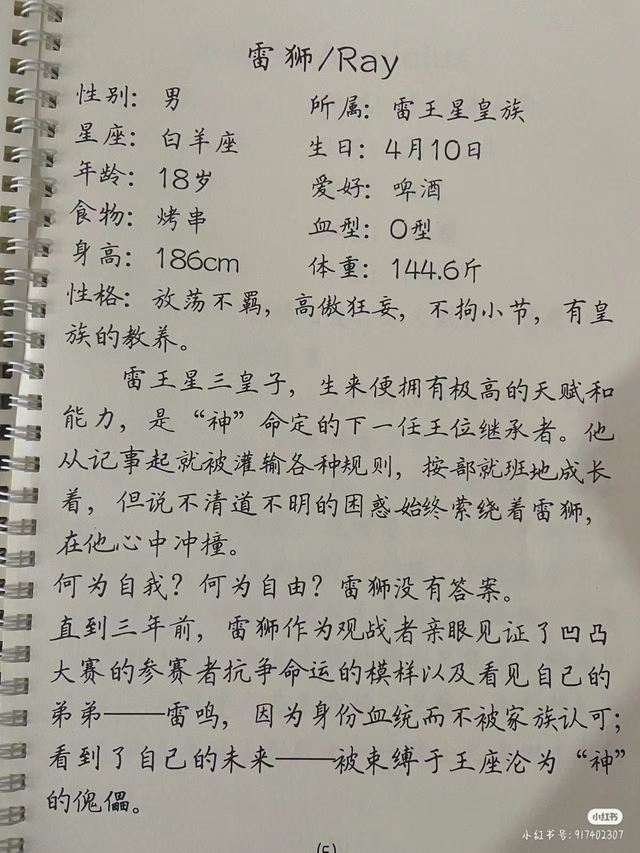 雷狮/Ray
性别：男 所属：雷王星皇族
星座：白羊座 生日：4月10日
年龄：18岁 爱好：啤酒
食物：烤串 血型：O型
身高：186cm 体重：144.6斤
性格：放荡不羁，高傲狂妄，不拘小节，有皇
族的教养。
雷王星三皇子，生来便拥有极高的天赋和
能力，是“神”命定的下一任王位继承者。他
从记事起就被灌输各种规则，按部就班地成长
着，但说不清道不明的困惑始终萦绕着雷狮，
在他心中冲撞。
何为自我？何为自由？雷狮没有答案。
直到三年前，雷狮作为观战者亲眼见证了凹凸
大赛的参赛者抗争命运的模样以及看见自己的
弟弟——雷鸣，因为身份血统而不被家族认可；
看到了自己的未来——被束缚于王座沦为“神”
的傀儡。
小红书
小红书号：917402307
(5)